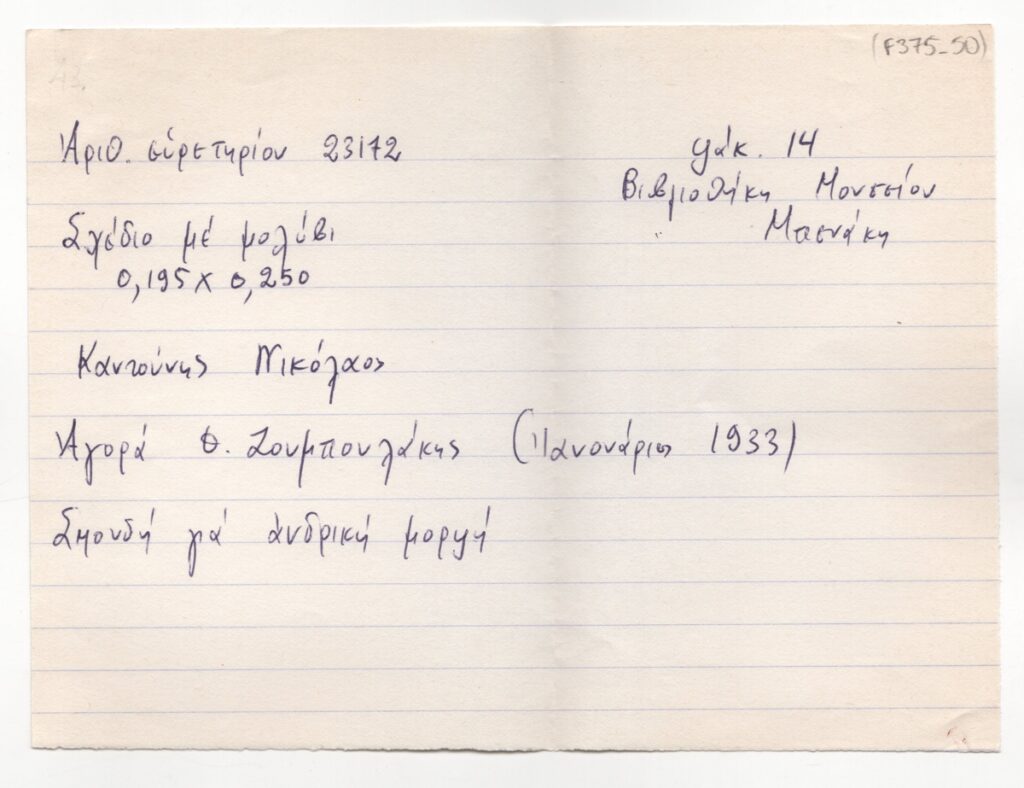 (F375-50)
Ἀριθ. εὑρετηρίου 23172
φάκ. 14
Βιβλιοθήκη Μουσείου
Μπενάκη
Σχέδιο μέ μολύβι
0,195 x 0,250
Καντούνης Νικόλαος
Ἀγορά Θ. Ζουμπουλάκης (Ἰανουάριος 1933)
Σπουδή γιά ἀνδρική μορφή